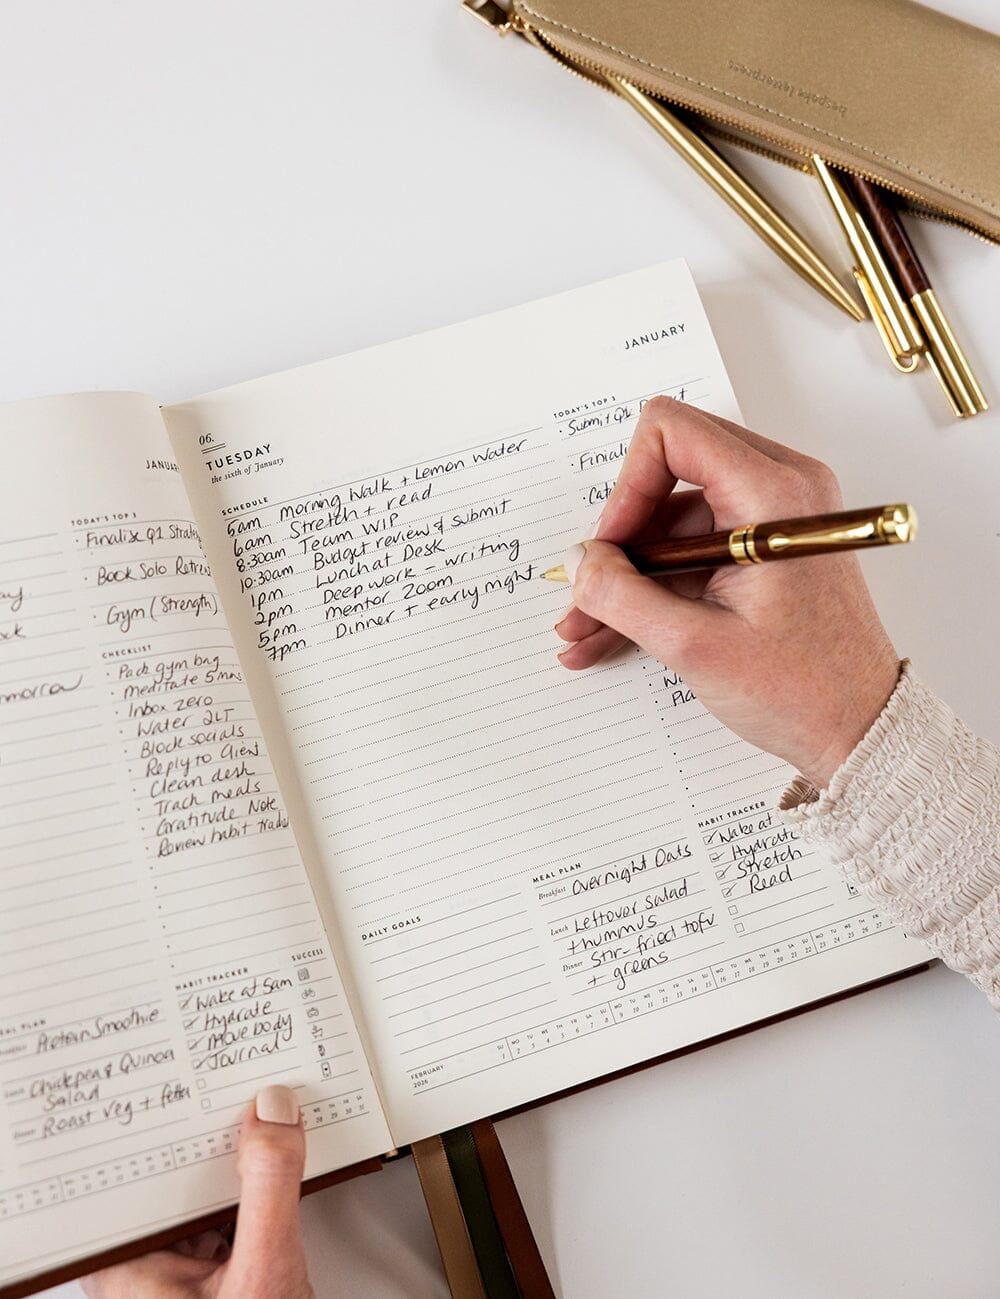 bespoke letterpress
JANUARY
TODAY'S TOP 3
· Finalise Q1
· Book Solo
· Gym (Strength)
CHECKLIST
· Pack gym bag
· meditate 5mins
· Inbox zero
· Water 2LT
· Block socials
· Reply to Client
· Clean desk
· Track meals
· Gratitude Note
· Review habit
HABIT TRACKER
SUCCESS
Wake at 5am
Hydrate
Move body
Journal
MEAL PLAN
Protein Smoothie
Chickpea & Quinoa
Salad
Roast veg + fetta
JANUARY
06.
TUESDAY
the sixth of January
SCHEDULE
5am morning walk + Lemon Water
6am Stretch + read
8.30am Team WIP
10.30am Budget review & submit
1pm Lunch at Desk
2pm Deep work - writing
5pm mentor Zoom
7pm Dinner + early night
TODAY'S TOP 3
· Submit Q1
DAILY GOALS
MEAL PLAN
Breakfast Overnight Oats
Lunch Leftover salad
+ hummus
Dinner Stir-fried tofu
+ greens
HABIT TRACKER
Wake at
Hydrate
Stretch
Read
FEBRUARY
2026
SU MO TU WE TH FR SA SU MO TU WE TH FR SA SU MO TU WE TH FR SA SU MO TU WE TH FR
1 2 3 4 5 6 7 8 9 10 11 12 13 14 15 16 17 18 19 20 21 22 23 24 25 26 27